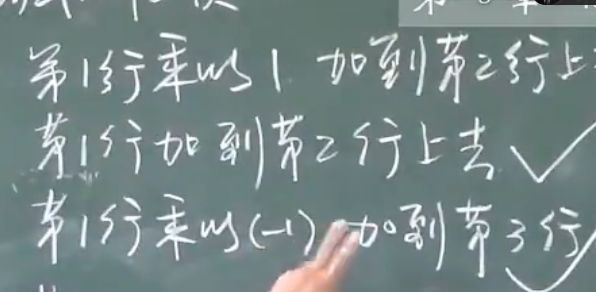 第1行乘以1 加到第2行上
第1行加到第2行上去
第1行乘以(-1) 加到第3行